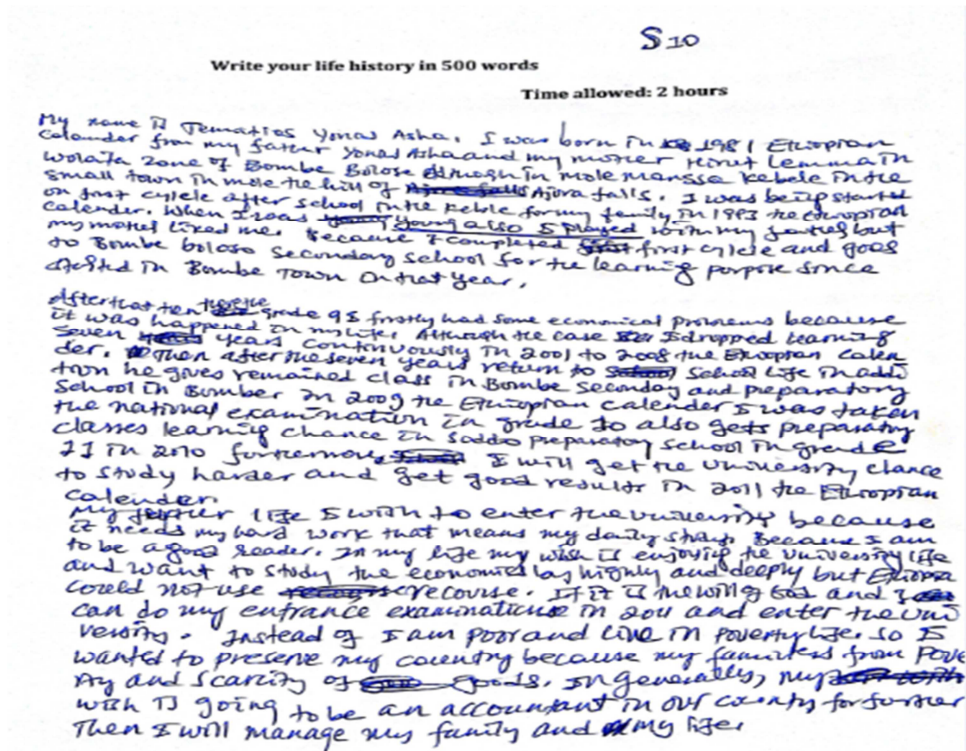 S10
Write your life history in 500 words
Time allowed: 2 hours
My name is Tematies Yonas Asha. I was born in 1981 Ethiopian
Calander from my father Yonas Asha and my mother Hirut Lemma in
Wolaita zone of Bombe Bolose in mole Kebele in the
small town in mole the hill of Ajora falls. I was being started
on first cylcle after school in the keble for my family in 1993 the
calender. When I was young also I played with my but
my mother liked me. Because I completed first cylcle and goes
to Bombe boloso Secondary School for the learning porpose since
in Bombe Town on that year.
After that ten grade 9 I firstly had some economical problems because
it was happened in my life. Although the case I dropped learning
seven years continuously in 2001 to 2008 the Ethiopian Calen
der. Then after the seven years return to School life in addi
tion he gives remained class in Bombe Seconday and preparatory
School in Bomber in 2009 the Ethiopian calender I was taken
the national examination in grade 10 also gets preparatry
classes learning chance in Soddo preparatory School in grade
11 in 2010 I will get the University chance
to study harder and get good results in 2011 the Ethiopian
Calender.
My life I wish to enter the university because
it needs my hard work that means my daily study. Because I am
to be a good reader. In my life my wish is enjoying the University life
and want to study the economics by highly and deeply but Ethiopia
could not use recourse. If it is the will of God and I
can do my entrance examination in 2011 and enter the uni
versity. Instead of I am poor and live in poverty life. so I
wanted to preserve my country because my families from Pove
rty and scarcity of goods. In generally, my
wish is going to be an accountant in our country for further
Then I will manage my family and my life.